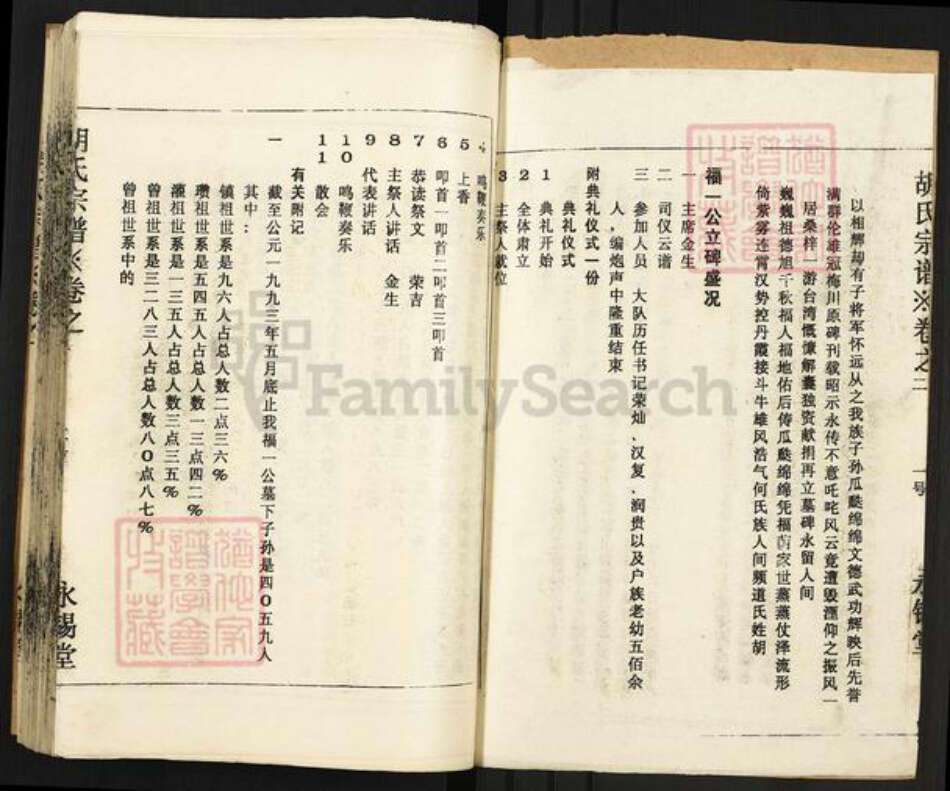 胡氏宗谱※卷之二
永锡堂
以相解却有子将军怀远从之我族子孙瓜瓞绵绵文德武功辉映后先誉
满群伦雄冠梅川原碑刊载昭示永传不意吒咤风云竟遭毁湮仰之振风一
居桑梓一游台湾慨慷解囊独资献捐再立墓碑永留人间
巍巍祖德旭千秋福人福地佑后俦瓜瓞绵绵凭福荫家世燕燕仗泽流形
倚紫雾连霄汉势控丹霞接斗牛雄风浩气何氏族人间频道氏姓胡
福一公立碑盛况
一 主席金生
二 司仪云谱
三 参加人员 大队历任书记荣灿、汉复、润贵以及户族老幼五佰余
人，编炮声中隆重结束
附典礼仪式一份
典礼仪式
1 典礼开始
2 全体肃立
3 主祭人就位
4 鸣鞭奏乐
5 上香
6 叩首一叩首二叩首三叩首
7 恭读祭文 荣吉
8 主祭人讲话 金生
9 代表讲话
10 鸣鞭奏乐
11 散会
有关附记
一 截至公元一九九三年五月底止我福一公墓下子孙是四0五九人
其中：
镇祖世系是九六人占总人数二点三六%
瓒祖世系是五四五人占总人数一三点四二%
灏祖世系是一三五人占总人数三点三五%
曾祖世系是三二八三人占总人数八0点八七%
曾祖世系中的
胡氏宗谱※卷之
永锡堂
FamilySearch